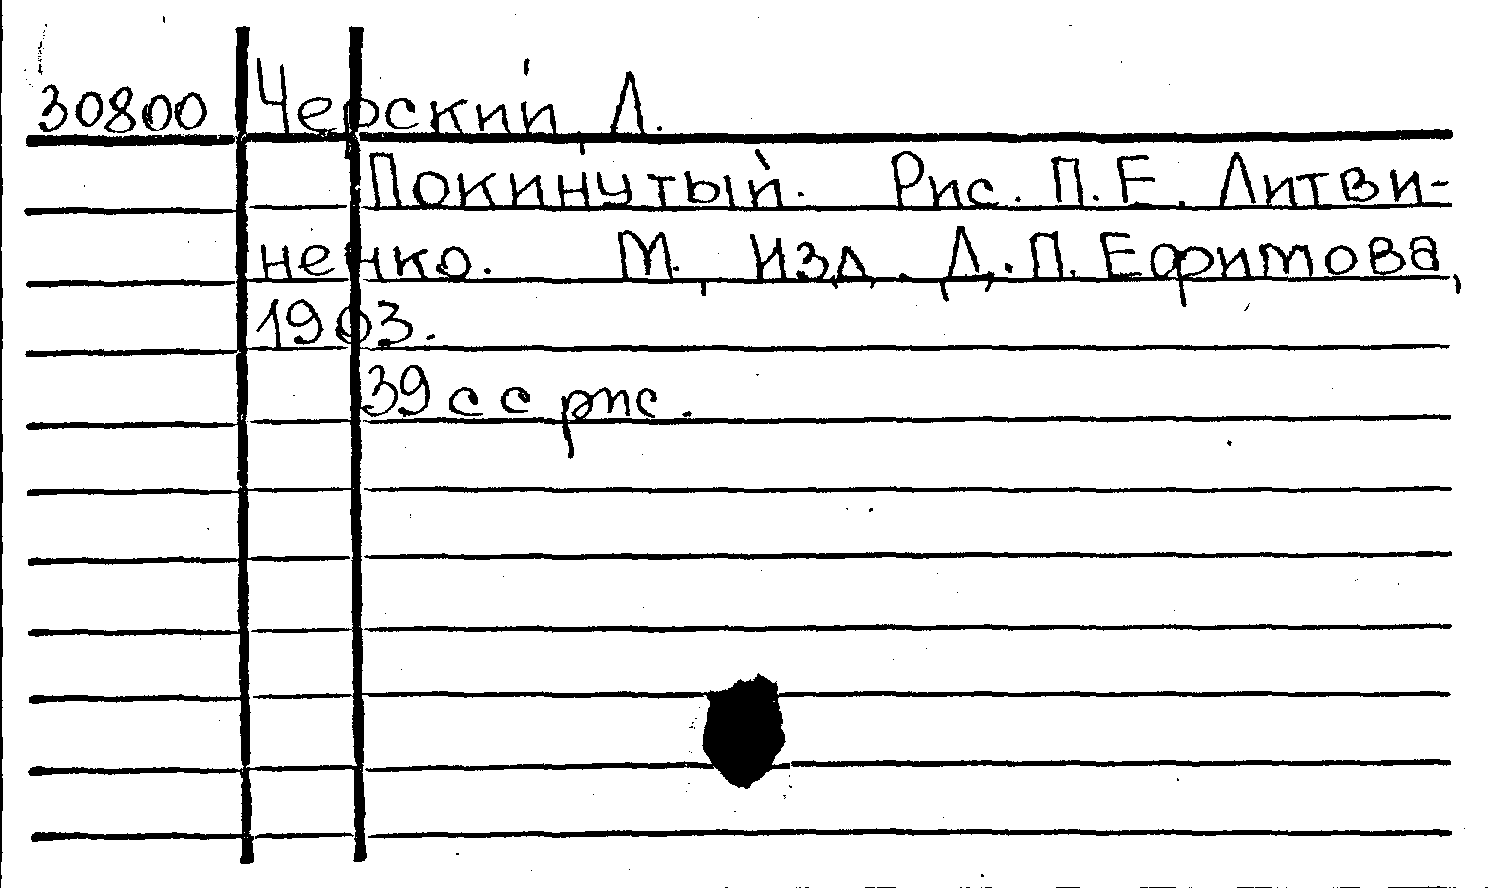 30800 Черский, Л.
Покинутый. Рис. П. Е. Литви-
ненко. М., Изд. Д. П. Ефимова,
1903.
39 с с рис.